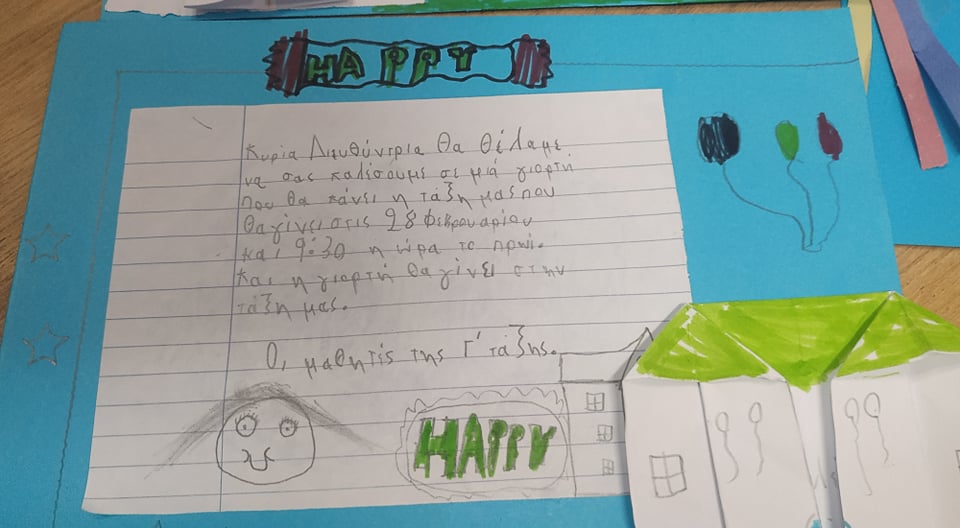 HAPPY
Κυρία Διευθύντρια θα θέλαμε
να σας καλέσουμε σε μιά γιορτή
που θα κάνει η τάξη μας που
θα γίνει στις 28 Φεβρουαρίου
και 9:30 η ώρα το πρωί.
Και η γιορτή θα γίνει στην
τάξη μας.
Οι μαθητίς της Γ' τάξης.
HAPPY